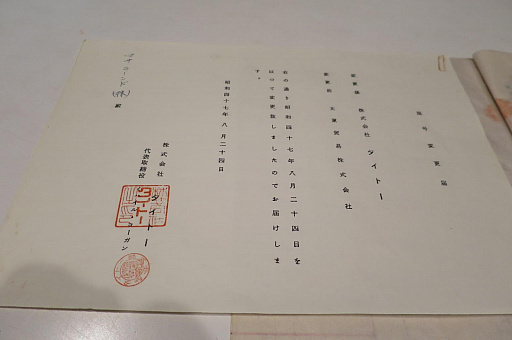 商号変更届
変更後 株式会社 タイトー
変更前 太東貿易株式会社
右の通り昭和四十七年八月二十四日を
以つて変更致しましたのでお届けしま
す。
昭和四十七年八月二十四日
株式会社 タイトー
代表取締役 コーガン
殿